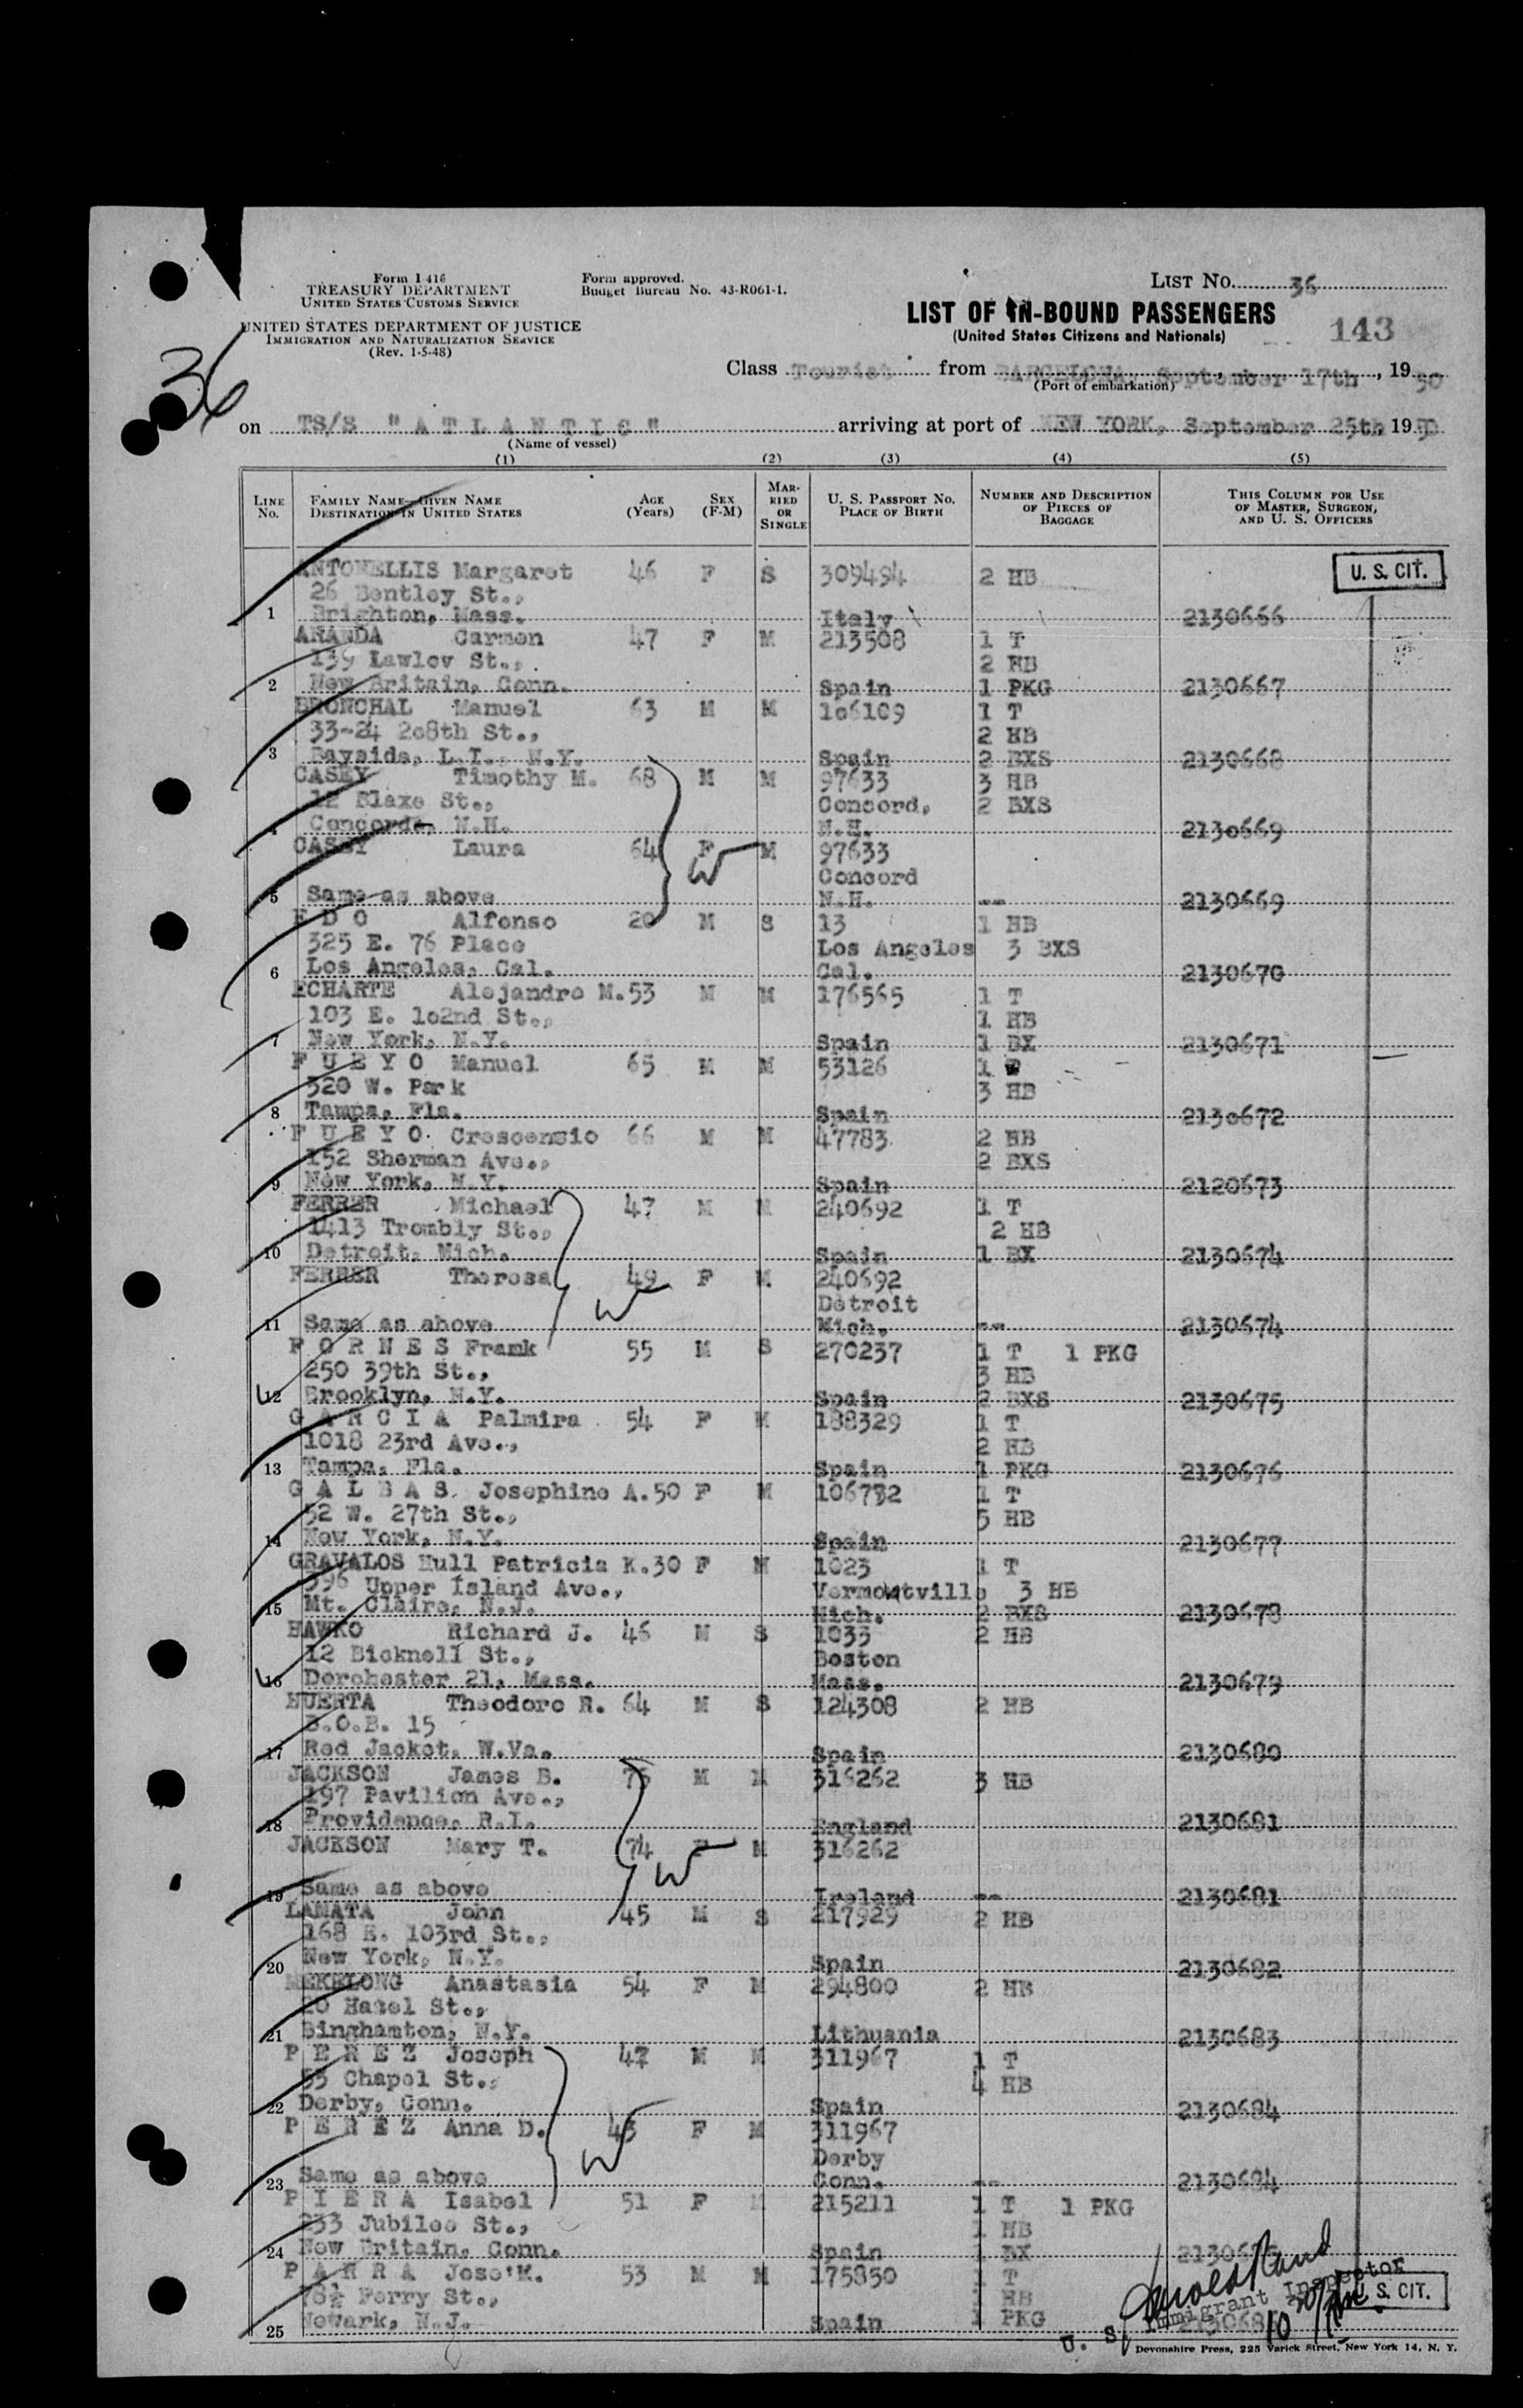 Form I 416
TREASURY DEPARTMENT
UNITED STATES CUSTOMS SERVICE
Form approved.
Budget Bureau No. 43-R061-1.
LIST No. 36
UNITED STATES DEPARTMENT OF JUSTICE
IMMIGRATION AND NATURALIZATION SERVICE
(Rev. 1-5-48)
LIST OF IN-BOUND PASSENGERS
(United States Citizens and Nationals)
143
36
Class Tourist from BARCELONA, September 17th, 1950
(Port of embarkation)
on TS/S "ATLANTIC" arriving at port of NEW YORK, September 25th 1950
(Name of vessel)
(1) (2) (3) (4) (5)
LINE No. FAMILY NAME—GIVEN NAME DESTINATION IN UNITED STATES AGE (Years) SEX (F-M) MARRIED OR SINGLE U. S. PASSPORT No. PLACE OF BIRTH NUMBER AND DESCRIPTION OF PIECES OF BAGGAGE THIS COLUMN FOR USE OF MASTER, SURGEON, AND U. S. OFFICERS
U. S. CIT.
ANTONELLIS Margaret 46 F S 309494 2 HB
26 Bentley St.,
1 Brighton, Mass. Italy 2130666
ARANDA Carmen 47 F M 213508 1 T
139 Lawlov St., 2 HB
2 New Britain, Conn. Spain 1 PKG 2130667
BRONCHAL Manuel 63 M M 106109 1 T
33-24 208th St., 2 HB
3 Bayside, L.I., N.Y. Spain 2 BXS 2130668
CASEY Timothy M. 68 M M 97633 3 HB
12 Blaxe St., Concord, 2 BXS
4 Concord, N.H. N.H. 2130669
CASEY Laura 64 F M 97633
Concord
5 Same as above N.H. -- 2130669
E D O Alfonso 20 M S 13 1 HB
325 E. 76 Place Los Angeles 3 BXS
6 Los Angeles, Cal. Cal. 2130670
ECHARTE Alejandro M. 53 M M 176565 1 T
103 E. 102nd St., 1 HB
7 New York, N.Y. Spain 1 BX 2130671
F U E Y O Manuel 65 M M 53126 1
320 W. Park 3 HB
8 Tampa, Fla. Spain 2130672
F U E Y O Crescencio 66 M M 47783 2 HB
152 Sherman Ave., 2 BXS
9 New York, N.Y. Spain 2120673
FERRER Michael 47 M M 240692 1 T
1413 Trombly St., 2 HB
10 Detroit, Mich. Spain 1 BX 2130674
FERRER Theresa 49 F M 240692
Detroit
11 Same as above Mich. -- 2130674
F O R N E S Frank 55 M S 270237 1 T 1 PKG
250 39th St., 3 HB
12 Brooklyn, N.Y. Spain 2 BXS 2130675
G A R C I A Palmira 54 F M 188329 1 T
1018 23rd Ave., 2 HB
13 Tampa, Fla. Spain 1 PKG 2130676
G A L B A S Josephine A. 50 F M 106782 1 T
52 W. 27th St., 5 HB
14 New York, N.Y. Spain 2130677
GRAVALOS Hull Patricia K. 30 F M 1023 1 T
396 Upper Island Ave., Vermontville 3 HB
15 Mt. Claire, N.J. Mich. 2 BXS 2130678
HAWKO Richard J. 46 M S 1033 2 HB
12 Bicknell St., Boston
16 Dorchester 21, Mass. Mass. 2130679
HUERTA Theodoro R. 64 M S 124308 2 HB
B.O.B. 15
17 Red Jacket, W.Va. Spain 2130680
JACKSON James B. M M 316262 3 HB
197 Pavilion Ave.,
18 Providence, R.I. England 2130681
JACKSON Mary T. 74 F M 316262
19 Same as above Ireland -- 2130681
LAMATA John 45 M S 217929 2 HB
168 E. 103rd St.,
20 New York, N.Y. Spain 2130682
MEKELONG Anastasia 54 F M 294800 2 HB
20 Hazel St.,
21 Binghamton, N.Y. Lithuania 2130683
P E R E Z Joseph 47 M M 311967 1 T
53 Chapel St., 4 HB
22 Derby, Conn. Spain 2130684
P E R E Z Anna D. 43 F M 311967
Derby
23 Same as above Conn. -- 2130684
P I E R A Isabel 51 F M 215211 1 T 1 PKG
233 Jubilee St., 1 HB
24 New Britain, Conn. Spain 1 BX
P A R R A Jose M. 53 M M 175850 1 T
Ferry St., HB
25 Newark, N.J. Spain 1 PKG
U. S. Immigrant Inspector
U. S. CIT.
Devonshire Press, 225 Varick Street, New York 14, N. Y.